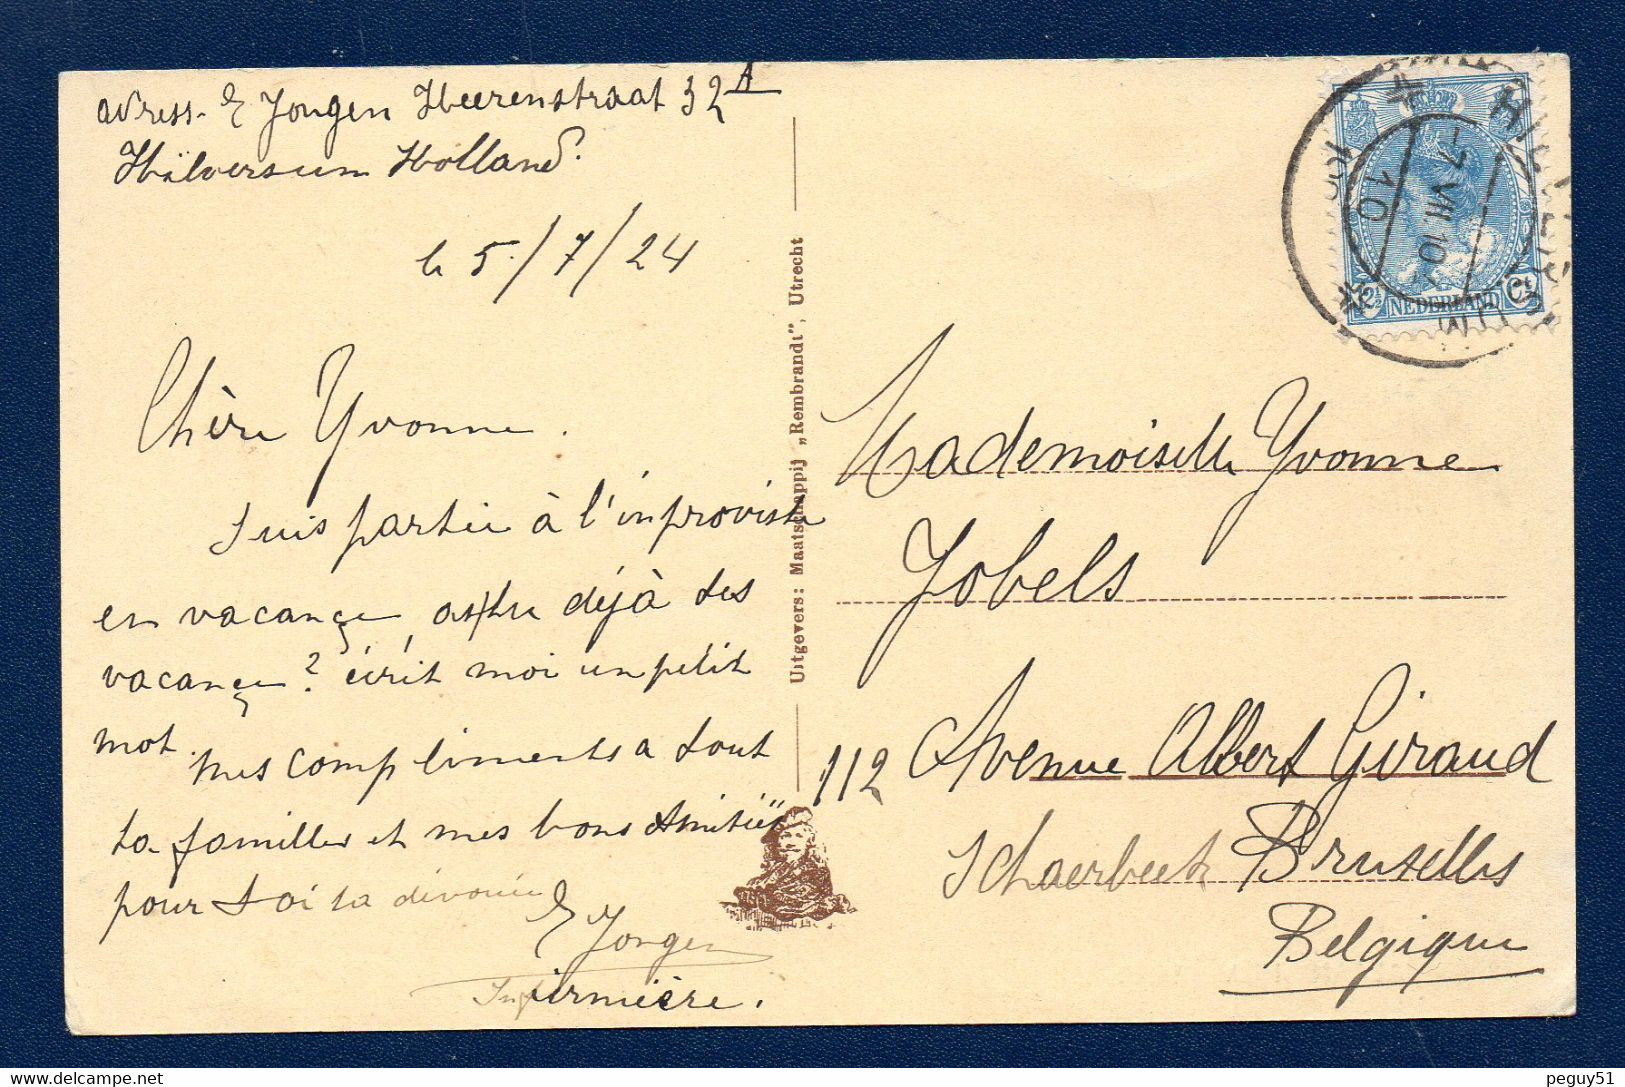 adress. E Jongen Heerenstraat 32 A
Hilversum Holland.
le 5/7/24
Chère Yvonne.
Suis partie à l'improviste
en vacançe astu déjà tes
vacançe? écrit moi un petit
mot. Mes compliments a tout
ta famille et mes bons Amitiés
pour toi ta dévouée
E Jongen
Infirmière.
Uitgevers: Maatschappij „Rembrandt", Utrecht
-7 VII 10
10
NEDERLAND
2½ Ct
Mademoiselle Yvonne
Jobels
112 Avenue Albert Giraud
Schaerbeek Bruxelles
Belgique
peguy51
delcampe.net